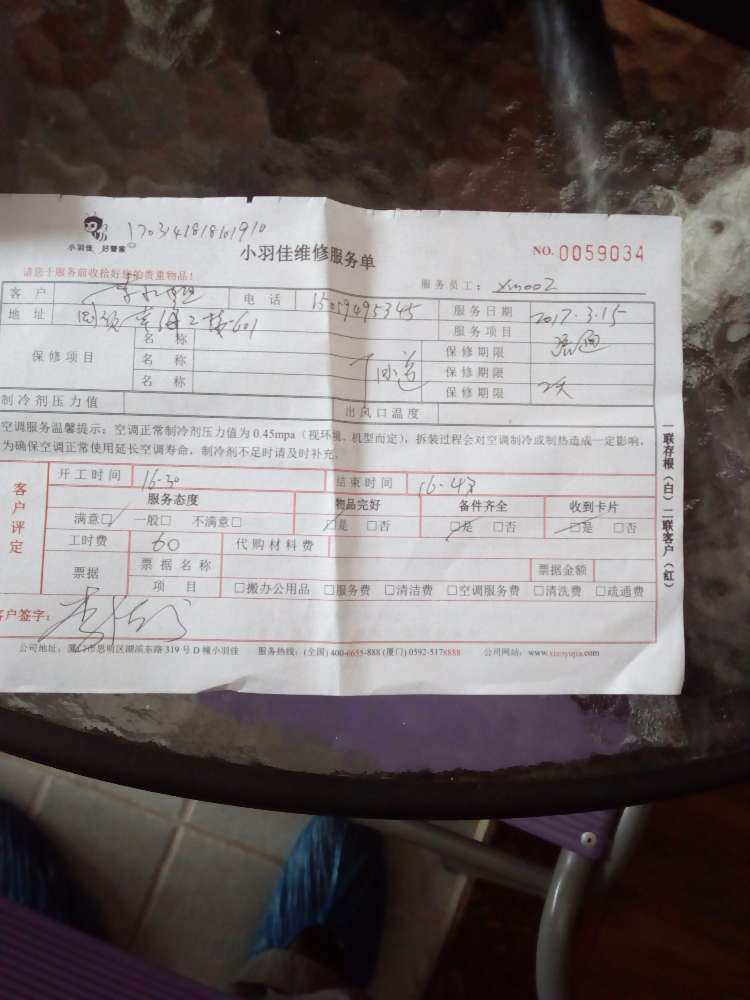 小羽佳 好管家
170314181801910
小羽佳维修服务单
NO. 0059034
请您于服务前收拾好您的贵重物品！
服务员工：
客户 电话 15059495345 服务日期 2017.3.15
地址 2栋-601 服务项目
保修项目 名称 保修期限
名称 保修期限
名称 保修期限
制冷剂压力值 出风口温度
空调服务温馨提示：空调正常制冷剂压力值为 0.45mpa（视环境、机型而定），拆装过程会对空调制冷或制热造成一定影响，
为确保空调正常使用延长空调寿命，制冷剂不足时请及时补充。
客户评定
开工时间 16-30 结束时间 16-43
服务态度 物品完好 备件齐全 收到卡片
满意□ 一般□ 不满意□ □是 □否 □是 □否 □是 □否
工时费 60 代购材料费
票据 票据名称 票据金额
项目 □搬办公用品 □服务费 □清洁费 □空调服务费 □清洗费 □疏通费
客户签字：
公司地址：厦门市思明区湖滨东路 319 号 D 幢小羽佳 服务热线：(全国) 400-6655-888 (厦门) 0592-5178888 公司网站：www.xiaoyujia.com
一联存根（白）二联客户（红）